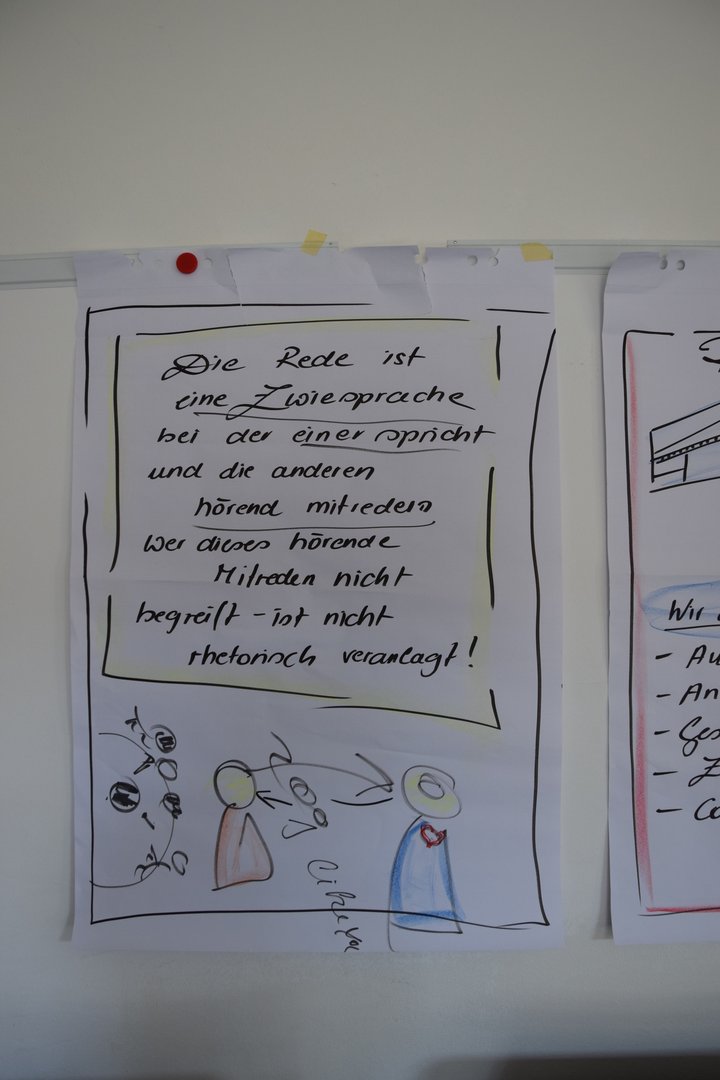 Die Rede ist
eine Zwiesprache
bei der einer spricht
und die anderen
hörend mitreden
Wer dieses hörende
Mitreden nicht
begreift - ist nicht
rhetorisch veranlagt!
Wir
- Au
- An
- Ges
- Z
- Co